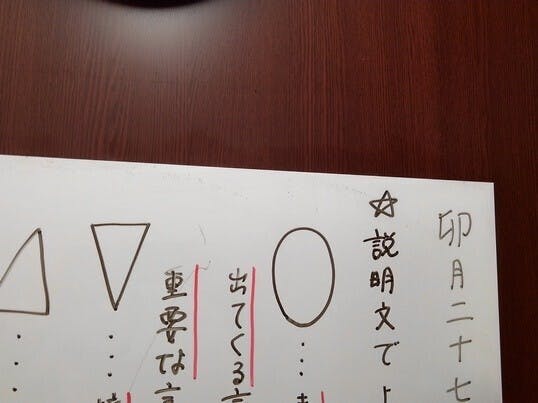 卯月二十七
☆説明文でよ
○…
出てくる言
重要な言
▽…
△…